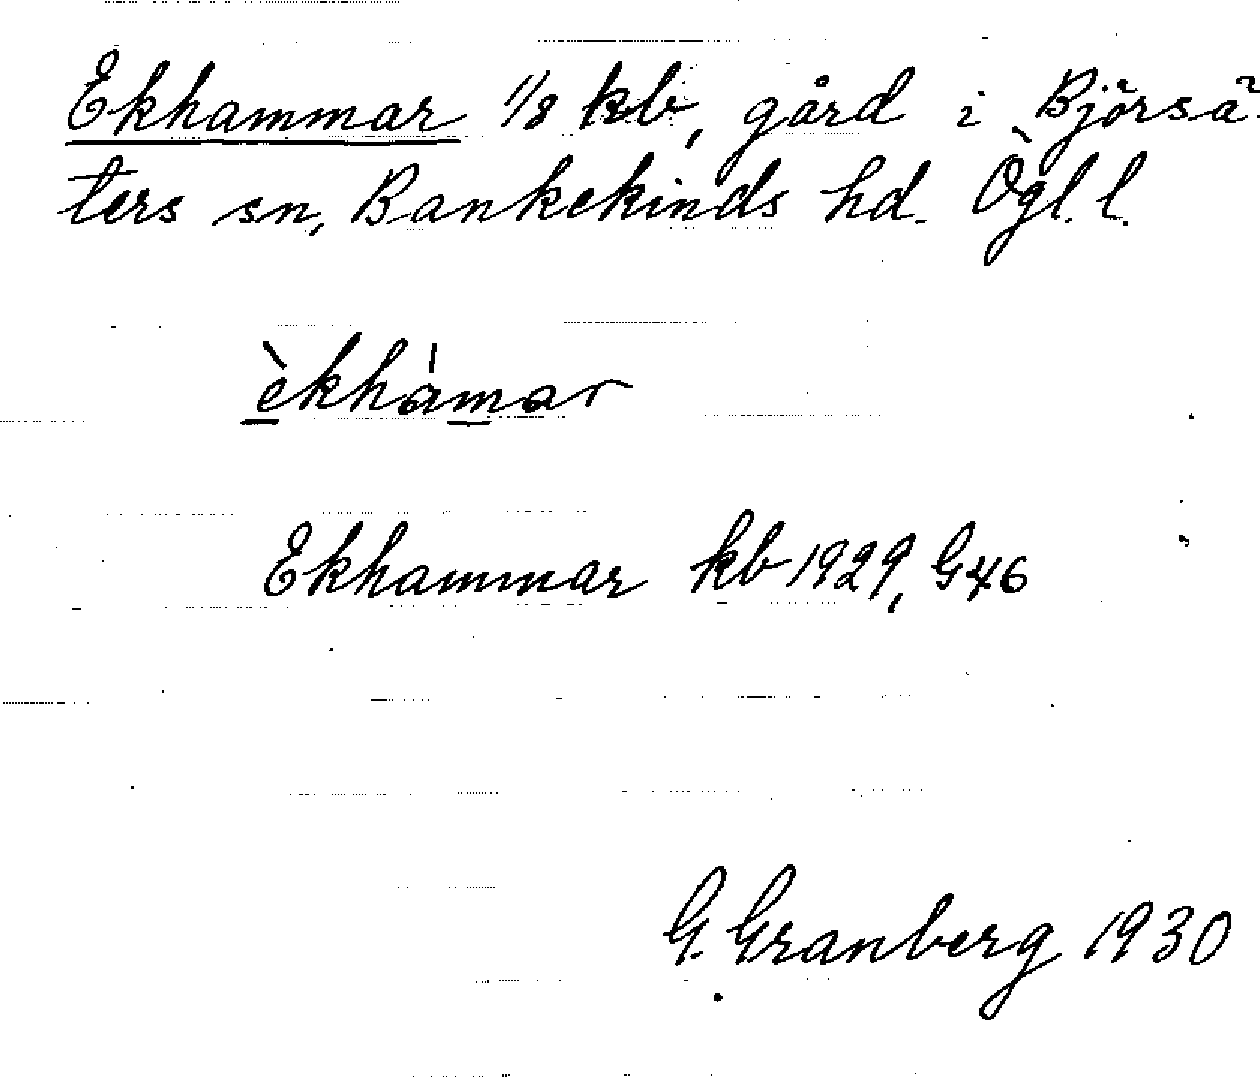 Ekhammar 1/8 kb, gård i Björsä-
ters sn, Bankekinds hd. Ögl. l.
èkhámar
Ekhammar kb 1929, G46
G. Granberg 1930